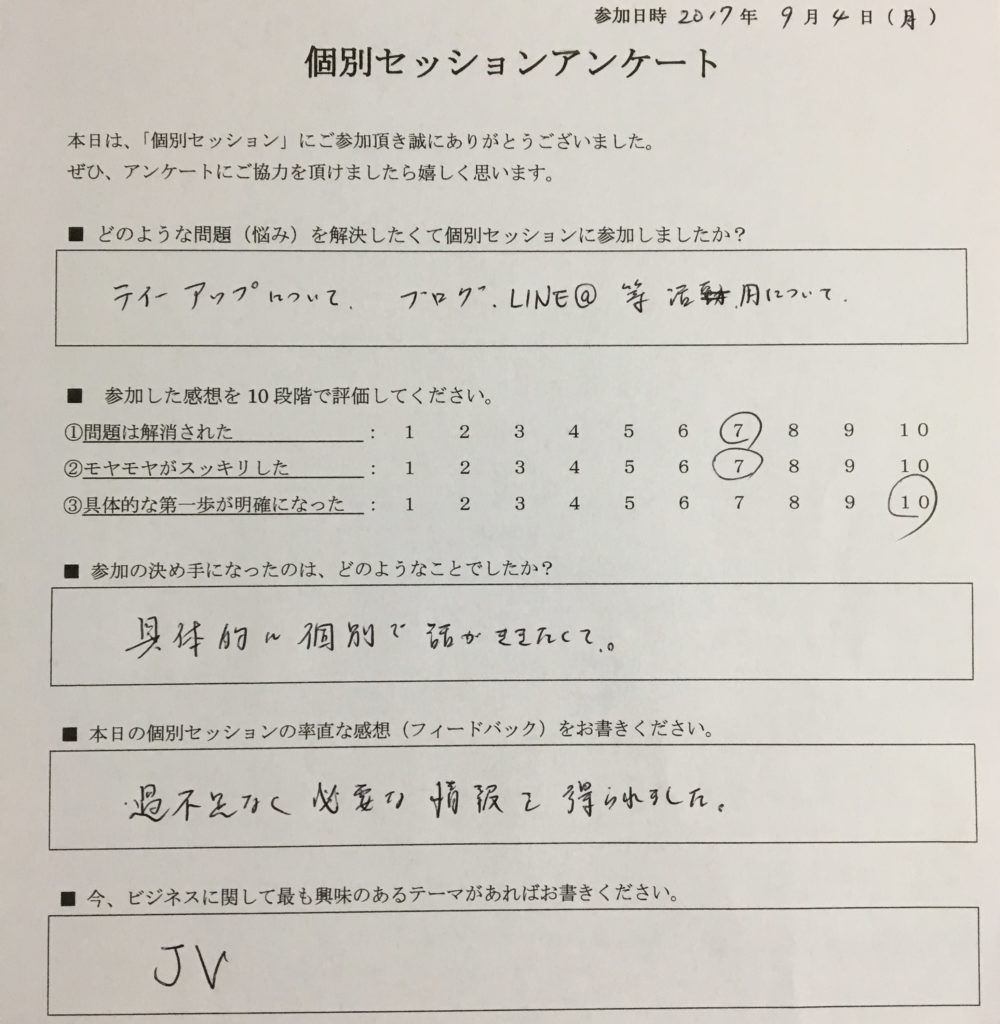 参加日時 2017年 9月 4日(月)
個別セッションアンケート
本日は、「個別セッション」にご参加頂き誠にありがとうございました。
ぜひ、アンケートにご協力を頂けましたら嬉しく思います。
■ どのような問題（悩み）を解決したくて個別セッションに参加しましたか？
ティーアップについて. ブログ. LINE@ 等 活用について.
■ 参加した感想を 10 段階で評価してください。
①問題は解消された : 1 2 3 4 5 6 7 8 9 10
②モヤモヤがスッキリした : 1 2 3 4 5 6 7 8 9 10
③具体的な第一歩が明確になった : 1 2 3 4 5 6 7 8 9 10
■ 参加の決め手になったのは、どのようなことでしたか？
具体的に個別で話がききたくて。
■ 本日の個別セッションの率直な感想（フィードバック）をお書きください。
過不足なく必要な情報を得られました。
■ 今、ビジネスに関して最も興味のあるテーマがあればお書きください。
JV